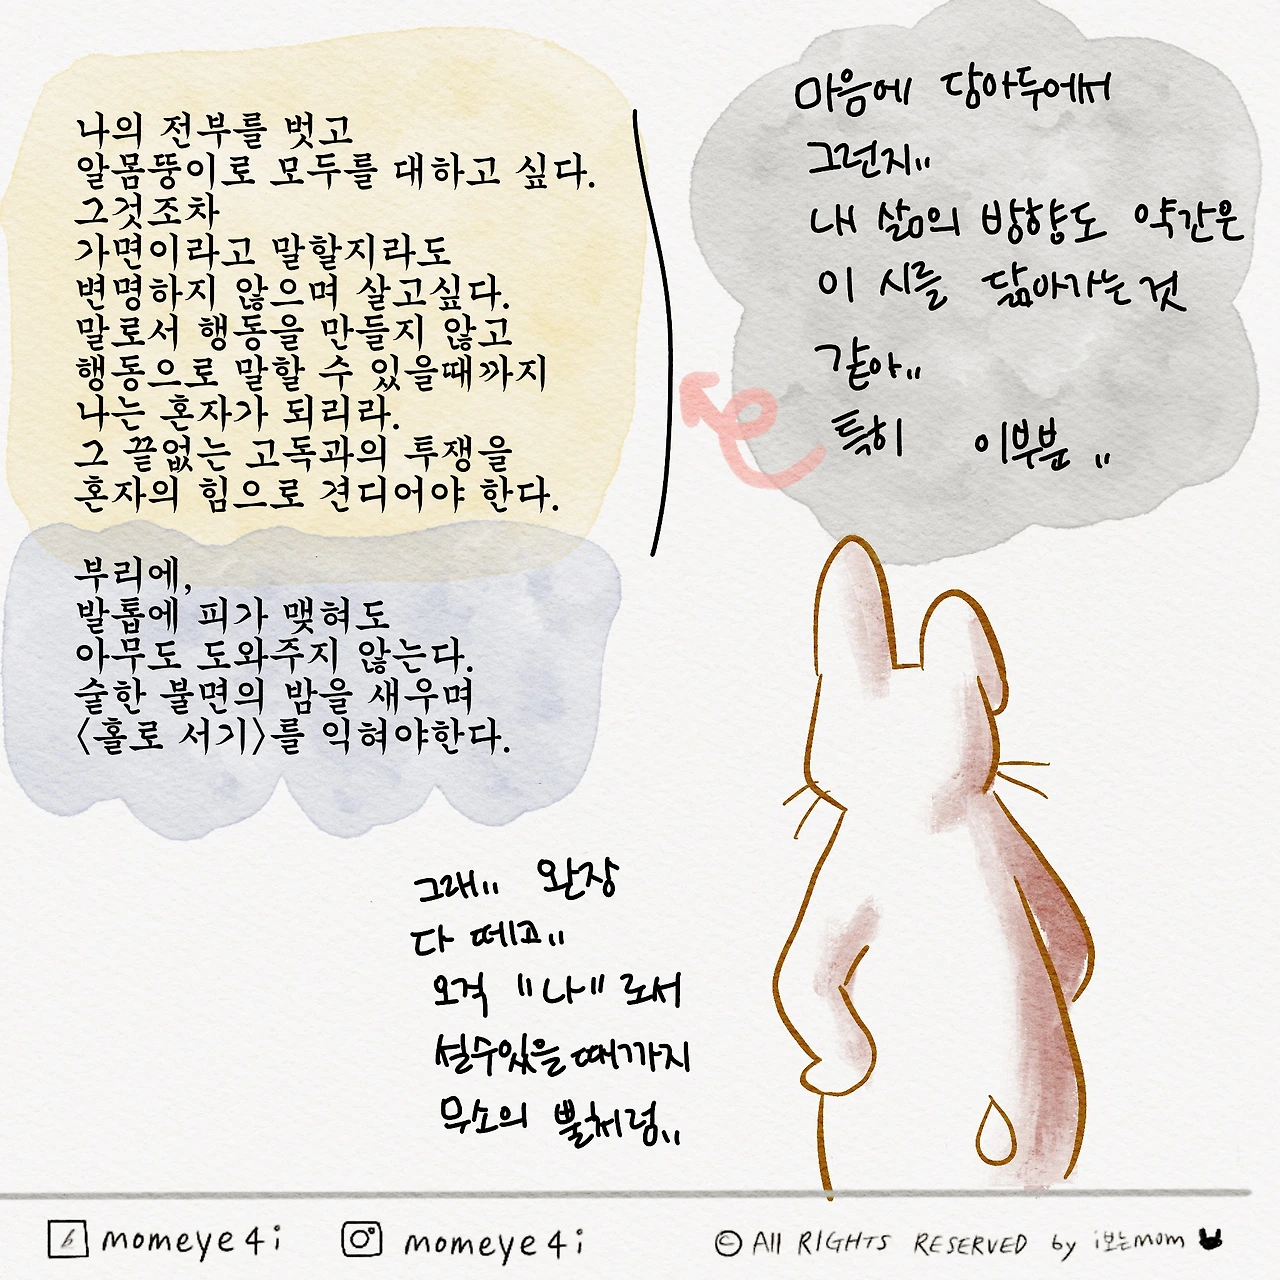 나의 전부를 벗고
알몸뚱이로 모두를 대하고 싶다.
그것조차
가면이라고 말할지라도
변명하지 않으며 살고싶다.
말로서 행동을 만들지 않고
행동으로 말할 수 있을때까지
나는 혼자가 되리라.
그 끝없는 고독과의 투쟁을
혼자의 힘으로 견디어야 한다.
부리에,
발톱에 피가 맺혀도
아무도 도와주지 않는다.
숱한 불면의 밤을 새우며
〈홀로 서기〉를 익혀야한다.
마음에 담아두어서
그런지..
내 삶의 방향도 약간은
이 시를 닮아가는 것
같아..
특히 이부분..
그래.. 완장
다 떼고..
오직 "나"로서
설수있을때까지
무소의 뿔처럼..
b momeye4i
momeye4i
© All RIGHTS RESERVED by i보는mom